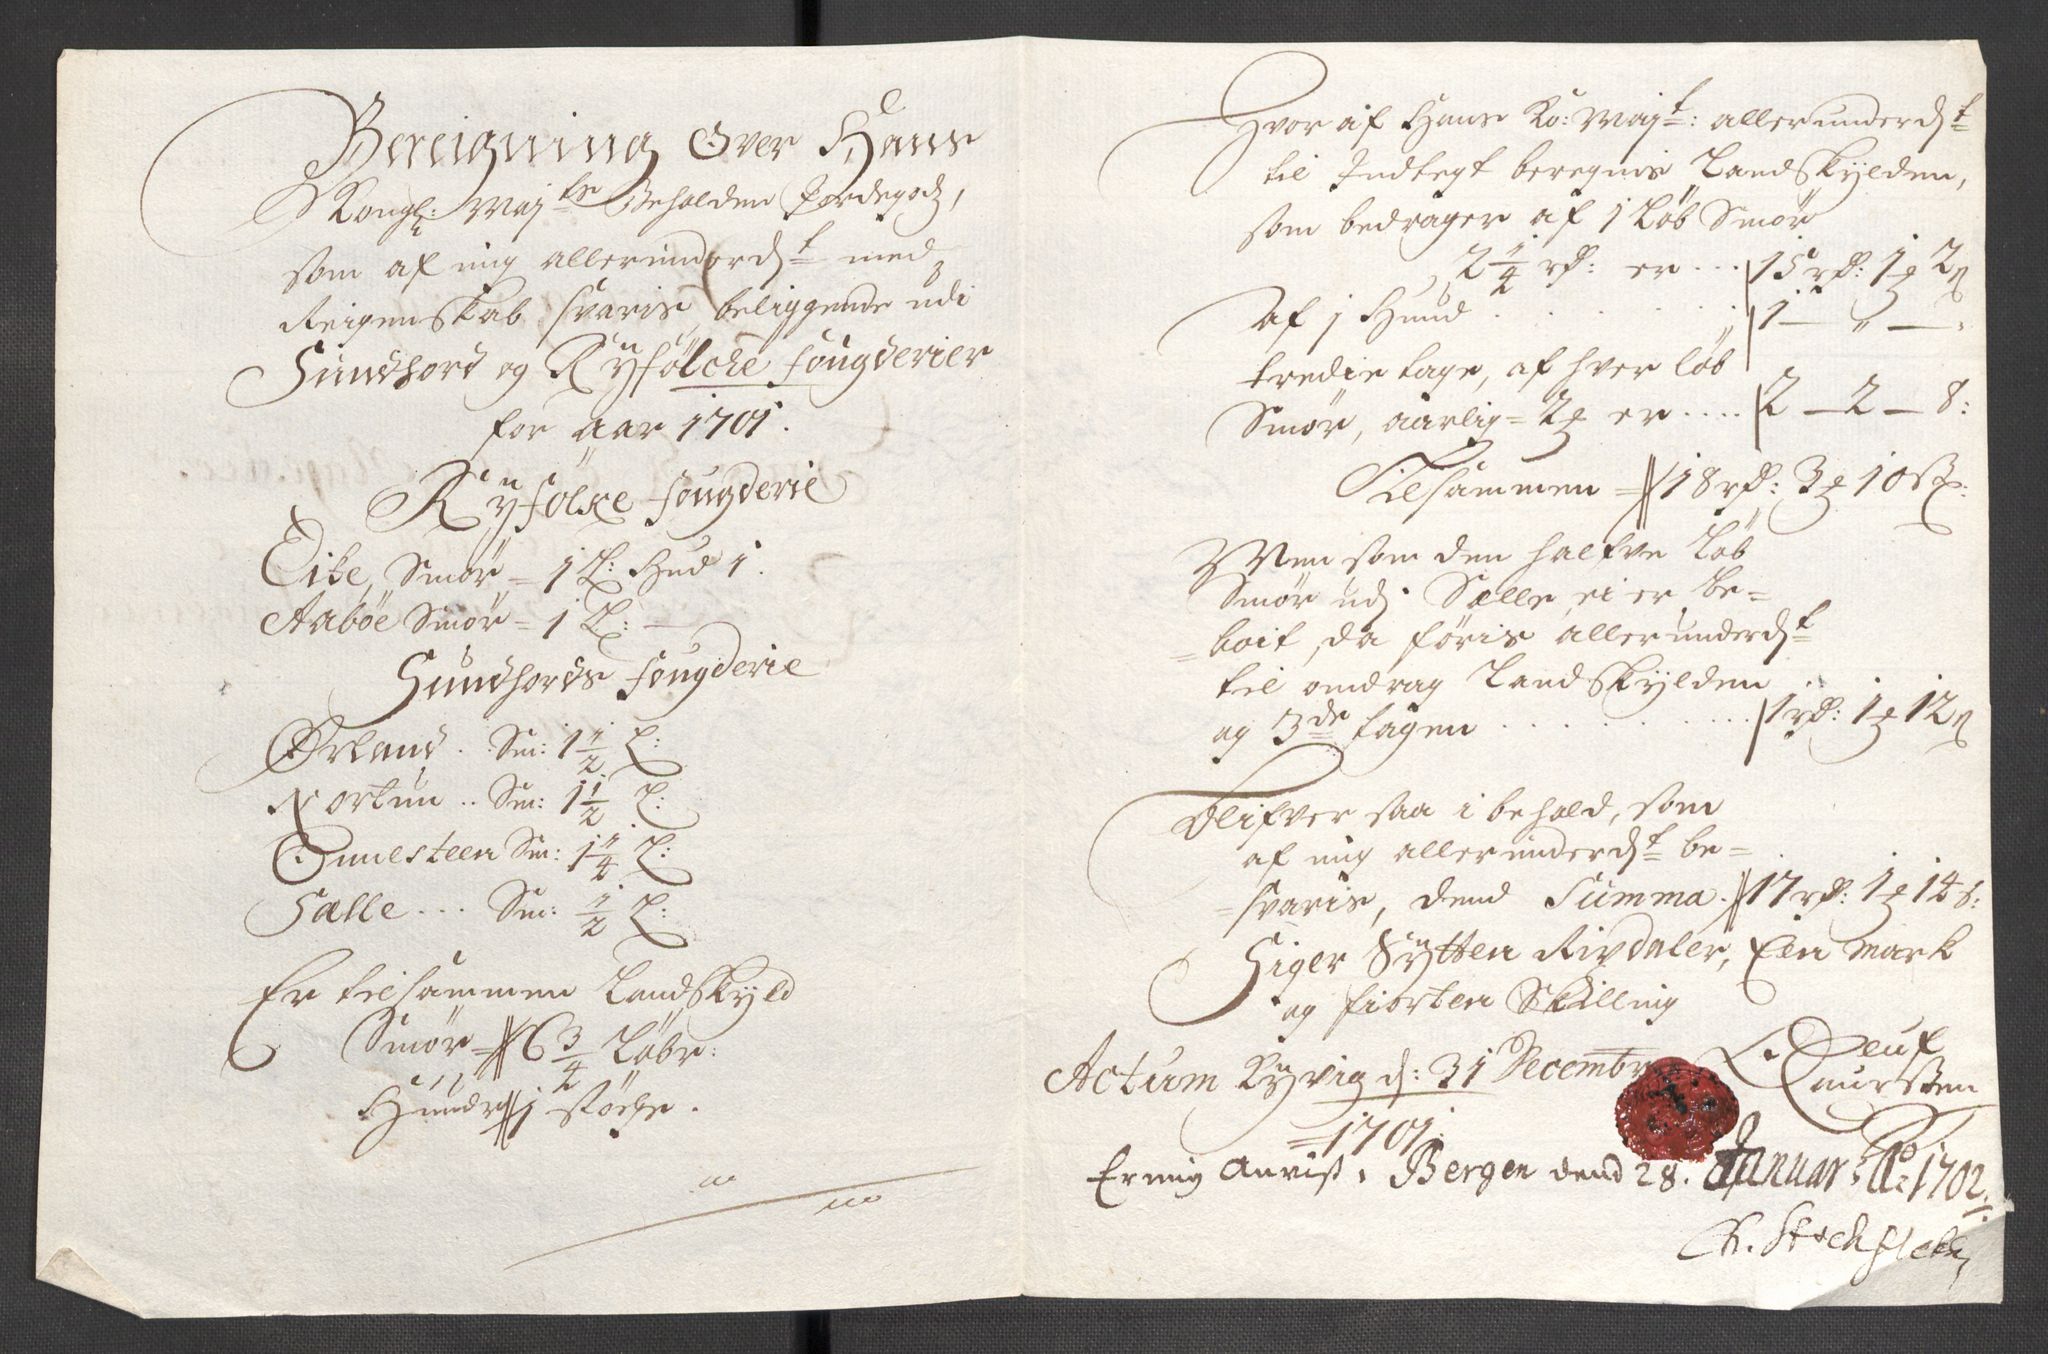 Bereigning Over Hans
Kongl: Mayts Beholden Jordegods,
som af mig allerunderdt med
Reigenskab svaris beliggende udi
Sundhord og Ryfölcke fougderier
for aar 1701.
Ryfölke fougderie
Eike, Smör = 1 L: Hud 1.
Aaböe Smör = 1 L: —
Sundhords fougderie
Örland . Sm: 1 1/2 L:
Nortun .. Sm: 1 1/2 L:
Omesteen Sm: 1 1/4 L:
Sælle ... Sm: 1/2 L:
Er tilsammen Landskyld
Smör = 6 3/4 Löbr:
Huudr 1 störche.
Hvor af Hans Ko: Mayt: allerunderdt
til Indtegt beregnis Landskylden,
som bedrager af 1 Löb Smör
2 1/4 rd: er ... 15 rd: 1 2
af 1 Huud . . . . . 1 — " —
tredie tage, af hver löb
Smör, aarlig = 2 er .... 2 — 2 — 8:
Tilsammen = 18 rd: 3 10 s:
Men som den halfve Löb
Smör udj Sælle ei er be=
=boit, da föris allerunderdt
til omdrag Landskylden
og 3de tagen . . . . . 1 rd: 1 12
Blifver saa i behold, som
af mig allerunderdt be=
=svaris, dend Summa . 17 rd: 1 14 s:
Siger Sytten Rixdaler, Een Mark
og fiorten Skilling
Actum Ryvig d: 31 Decembr
= 1701.
Leuf
Laurssen
Er mig Anvist i Bergen dend 28. Januarj Ao 1702.